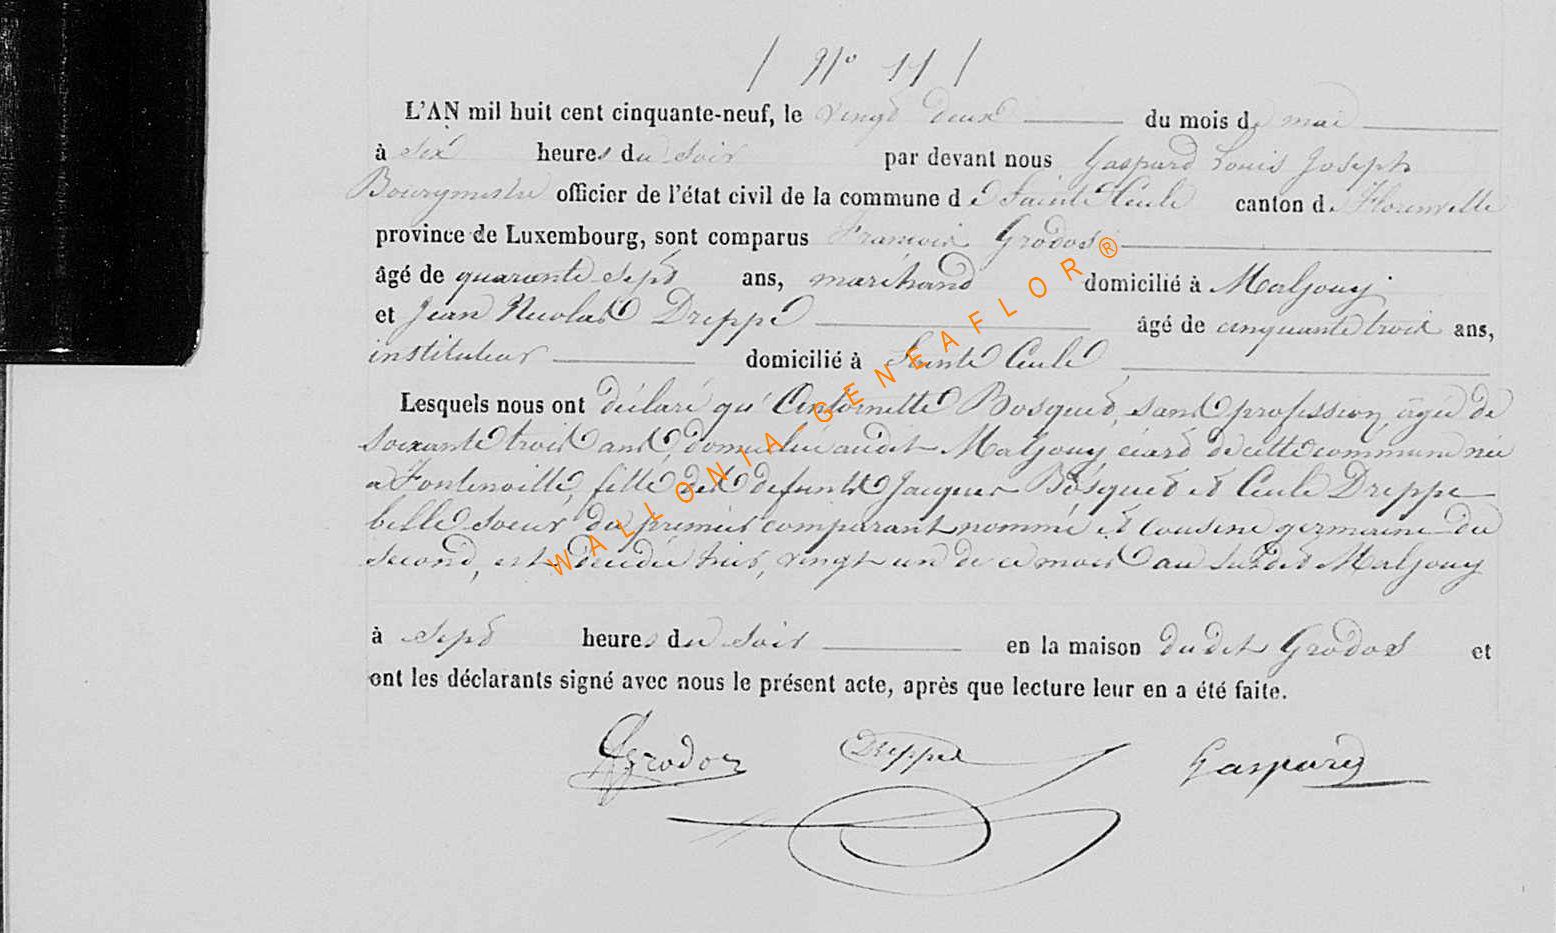 / N° 11 /
L'AN mil huit cent cinquante-neuf, le vingt deux du mois de mai
à six heures du soir par devant nous Gaspard Louis Joseph
Bourgmestre officier de l'état civil de la commune de Sainte Cecile canton de Florenville
province de Luxembourg, sont comparus François Grodos
âgé de quarante sept ans, marchand domicilié à Maljouy
et Jean Nicolas Dreppe âgé de cinquante trois ans,
instituteur domicilié à Sainte Cecile,
Lesquels nous ont déclaré qu'Antoinette Bosquet, sans profession, âgée de
soixante trois ans, domiciliée audit Maljouy écard de cette commune née
à Fontenoille, fille des defunts Jacques Bosquet et Cecile Dreppe
belle soeur du premier comparant nommé et cousine germaine du
second, est décédée hier, vingt un de ce mois au susdit Maljouy
à sept heures du soir en la maison du dit Grodos et
ont les déclarants signé avec nous le présent acte, après que lecture leur en a été faite.
Grodos Dreppe Gaspard
WALLONIA-GENEAFLOR®